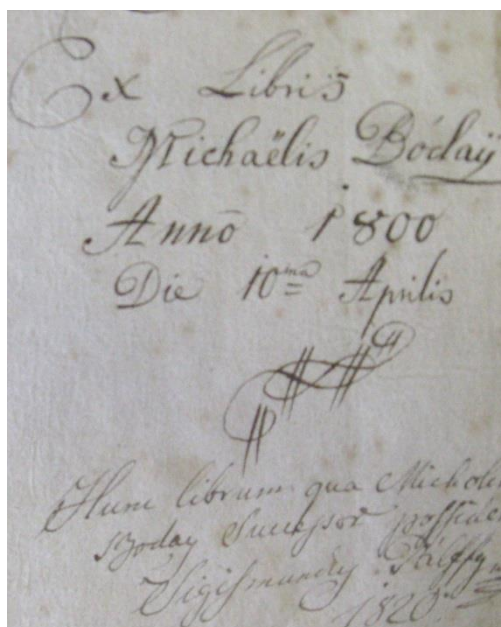 Ex Libris
Michaëlis Bóday
Anno 1800
Die 10ma Aprilis
Hunc librum qua Michaelis
Boday Successor possidet
Sigismundus Pálffy
1820